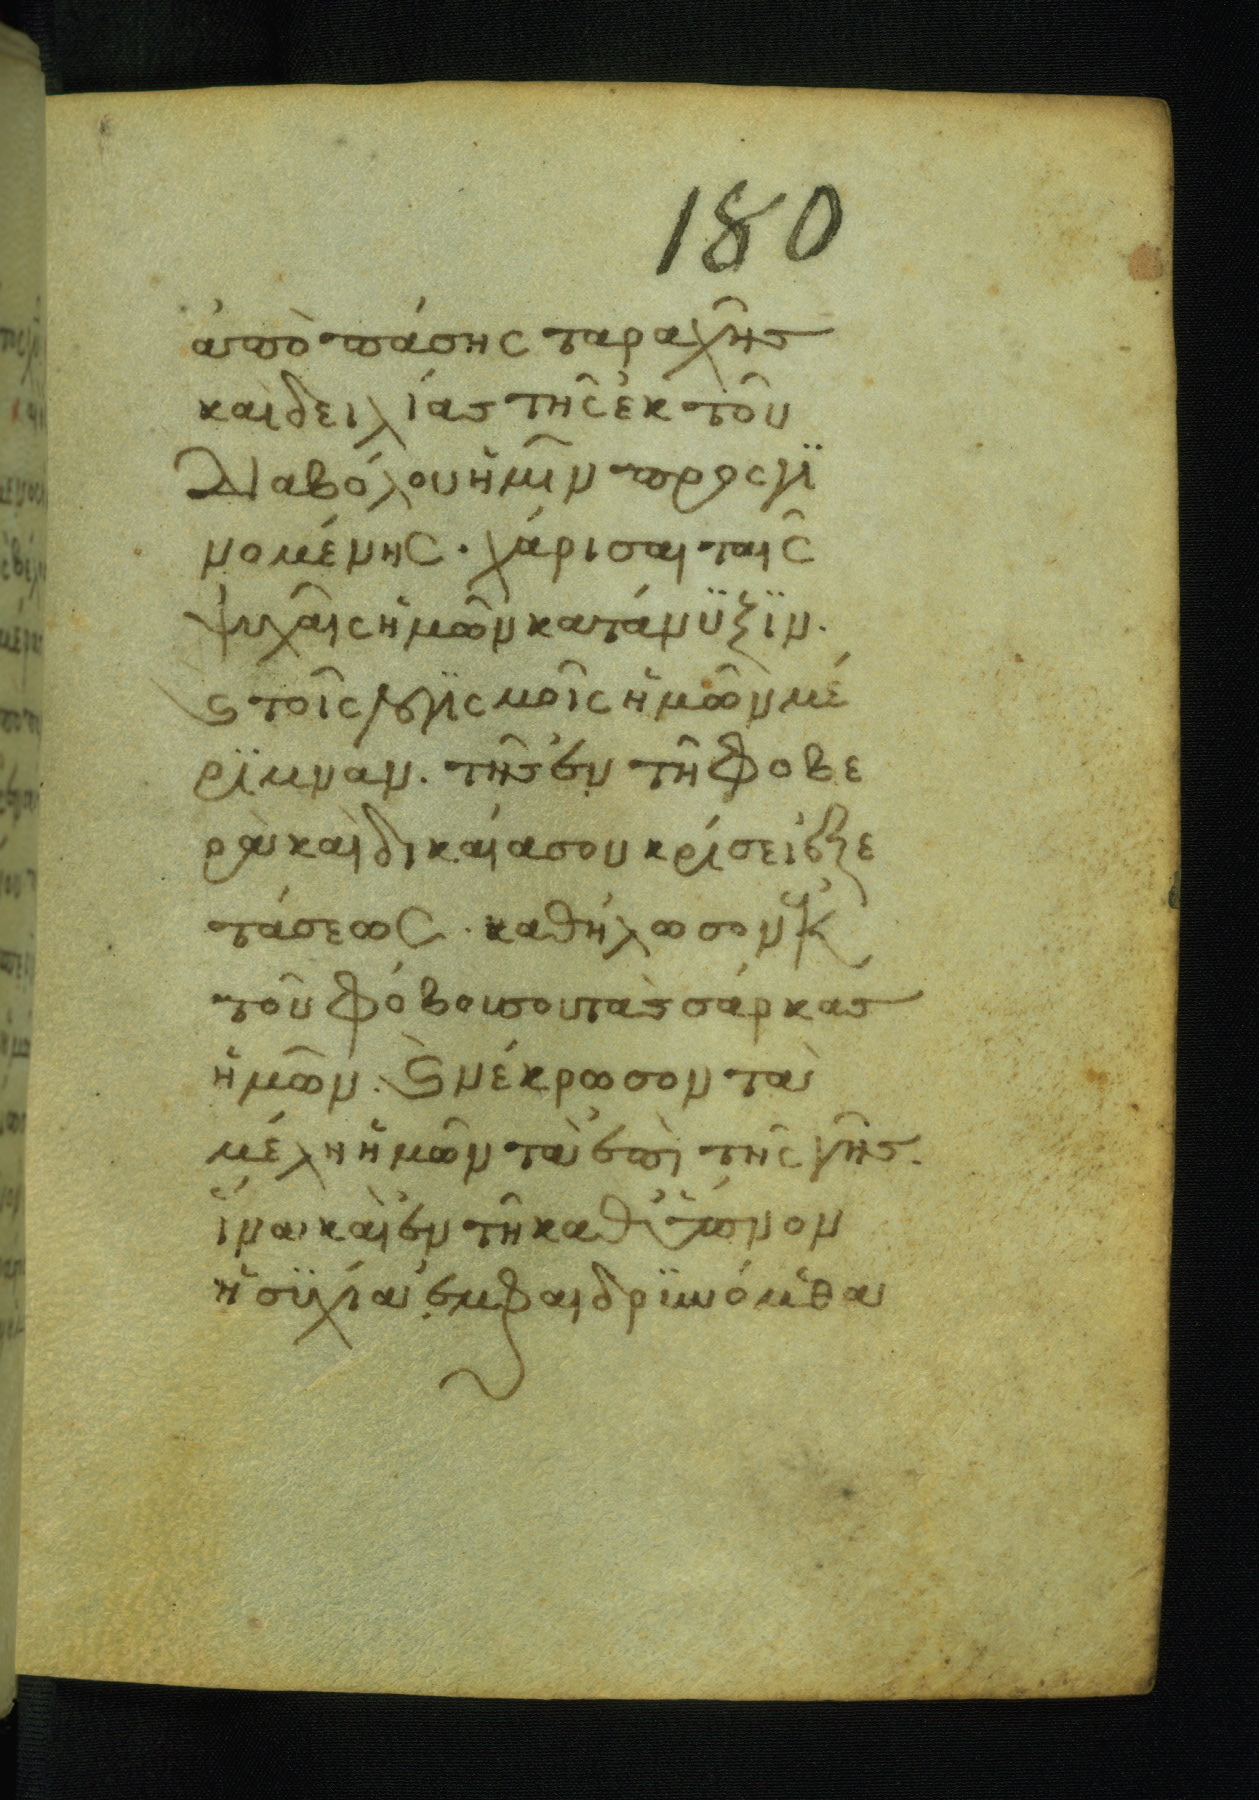 180
ἀπὸ πάσης ταραχῆς
καὶ δειλίας τῆς ἐκ τοῦ
Διαβόλου ἡμῖν προσγϊ
νομένης · χάρισαι ταῖς
ψυχαῖς ἡμῶν κατάνϋξϊν.
ϛ τοῖς λογϊσμοῖς ἡμῶν μέ
ρϊμναν. τῆς ἐν τῆ φοβε
ρᾶ καὶ δικαία σου κρίσει ἐξε
τάσεως · καθήλωσον κ̅ε̅
τοῦ φόβου σου τὰς σάρκας
ἡμῶν. ϛ νέκρωσον τὰ
μέλη ἡμῶν τὰ ἐπὶ τῆς γῆς.
ἵνα καὶ ἐν τῆ καθ ὕπνον
ἡσϋχία ἐμφαιδρϋνόμεθα